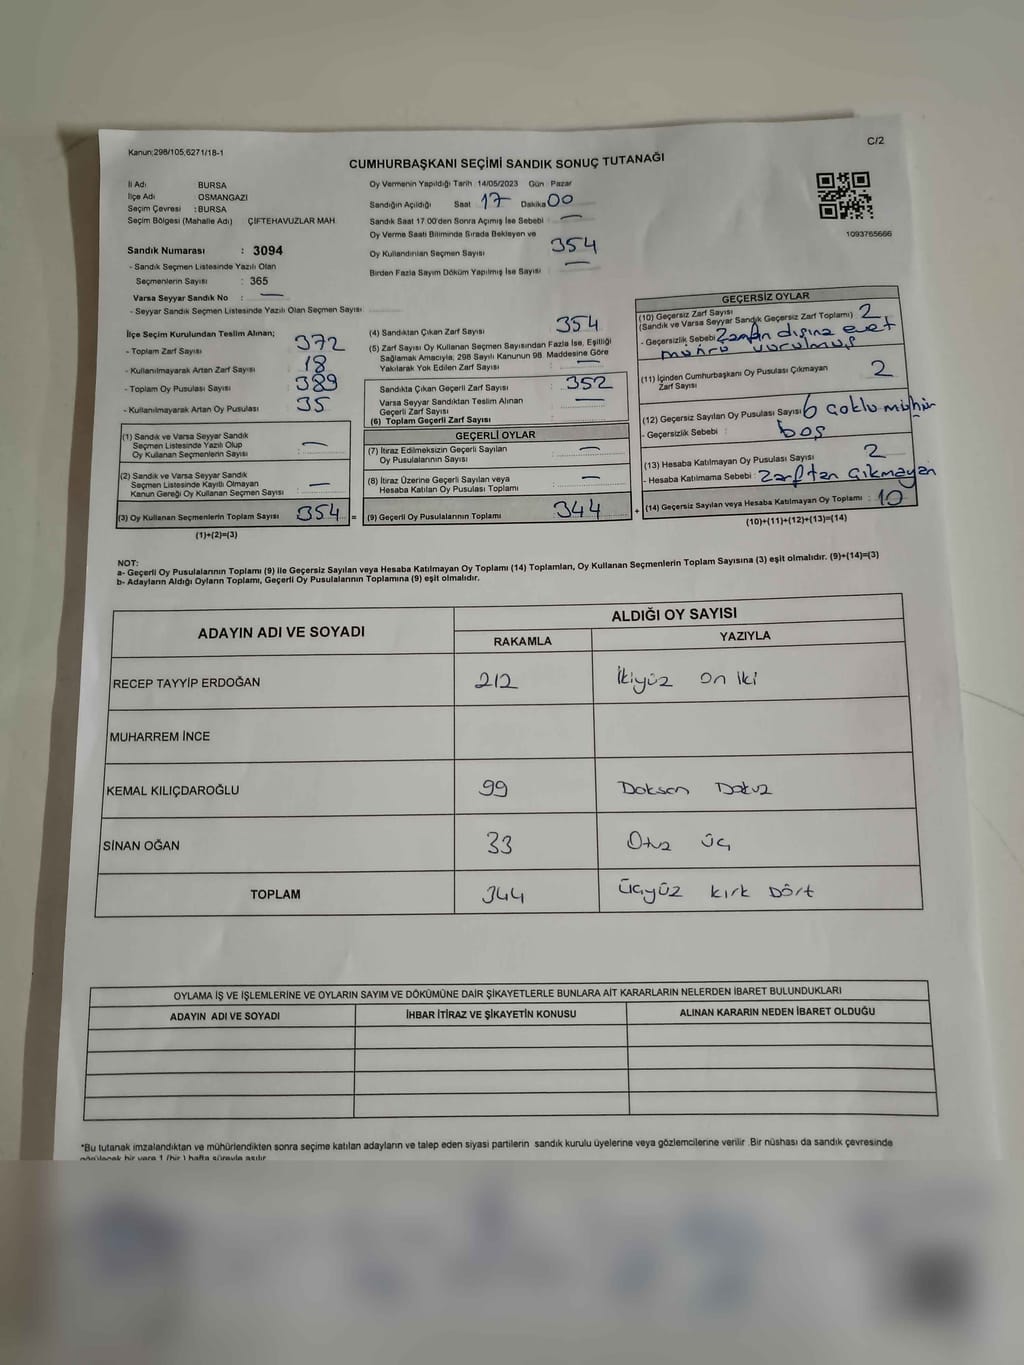 Kanun:298/105,6271/18-1
C/2
CUMHURBAŞKANI SEÇİMİ SANDIK SONUÇ TUTANAĞI
İl Adı BURSA
İlçe Adı OSMANGAZI
Seçim Çevresi : BURSA
Seçim Bölgesi (Mahalle Adı) ÇİFTEHAVUZLAR MAH.
Sandık Numarası : 3094
- Sandık Seçmen Listesinde Yazılı Olan
Seçmenlerin Sayısı : 365
Varsa Seyyar Sandık No : —
- Seyyar Sandık Seçmen Listesinde Yazılı Olan Seçmen Sayısı
Oy Vermenin Yapıldığı Tarih 14/05/2023 Gün Pazar
Sandığın Açıldığı Saat 17 Dakika 00
Sandık Saat 17.00'den Sonra Açımış İse Sebebi : —
Oy Verme Saati Bitiminde Sırada Bekleyen ve
Oy Kullandırılan Seçmen Sayısı 354
Birden Fazla Sayım Döküm Yapılmış İse Sayısı —
1093765666
İlçe Seçim Kurulundan Teslim Alınan;
- Toplam Zarf Sayısı : 372
- Kullanılmayarak Artan Zarf Sayısı : 18
- Toplam Oy Pusulası Sayısı : 389
- Kullanılmayarak Artan Oy Pusulası : 35
(1) Sandık ve Varsa Seyyar Sandık
Seçmen Listesinde Yazılı Olup
Oy Kullanan Seçmenlerin Sayısı : —
(2) Sandık ve Varsa Seyyar Sandık
Seçmen Listesinde Kayıtlı Olmayan
Kanun Gereği Oy Kullanan Seçmen Sayısı : —
(3) Oy Kullanan Seçmenlerin Toplam Sayısı : 354 =
(1)+(2)=(3)
(4) Sandıktan Çıkan Zarf Sayısı : 354
(5) Zarf Sayısı Oy Kullanan Seçmen Sayısından Fazla İse, Eşitliği
Sağlamak Amacıyla, 298 Sayılı Kanunun 98. Maddesine Göre
Yakılarak Yok Edilen Zarf Sayısı : —
Sandıkta Çıkan Geçerli Zarf Sayısı : 352
Varsa Seyyar Sandıktan Teslim Alınan
Geçerli Zarf Sayısı : —
(6) Toplam Geçerli Zarf Sayısı :
GEÇERLİ OYLAR
(7) İtiraz Edilmeksizin Geçerli Sayılan
Oy Pusulalarının Sayısı : —
(8) İtiraz Üzerine Geçerli Sayılan veya
Hesaba Katılan Oy Pusulası Toplamı : —
(9) Geçerli Oy Pusulalarının Toplamı : 344 +
GEÇERSİZ OYLAR
(10) Geçersiz Zarf Sayısı
(Sandık ve Varsa Seyyar Sandık Geçersiz Zarf Toplamı) : 2
- Geçersizlik Sebebi : Zarfın dışına evet
mührü vurulmuş
(11) İçinden Cumhurbaşkanı Oy Pusulası Çıkmayan
Zarf Sayısı : 2
(12) Geçersiz Sayılan Oy Pusulası Sayısı : 6 çoklu mühür
- Geçersizlik Sebebi : boş
(13) Hesaba Katılmayan Oy Pusulası Sayısı : 2
- Hesaba Katılmama Sebebi : Zarftan Çıkmayan
(14) Geçersiz Sayılan veya Hesaba Katılmayan Oy Toplamı : 10
(10)+(11)+(12)+(13)=(14)
NOT:
a- Geçerli Oy Pusulalarının Toplamı (9) ile Geçersiz Sayılan veya Hesaba Katılmayan Oy Toplamı (14) Toplamları, Oy Kullanan Seçmenlerin Toplam Sayısına (3) eşit olmalıdır. (9)+(14)=(3)
b- Adayların Aldığı Oyların Toplamı, Geçerli Oy Pusulalarının Toplamına (9) eşit olmalıdır.
ADAYIN ADI VE SOYADI ALDIĞI OY SAYISI
RAKAMLA YAZIYLA
RECEP TAYYİP ERDOĞAN 212 İkiyüz On iki
MUHARREM İNCE
KEMAL KILIÇDAROĞLU 99 Doksan Dokuz
SİNAN OĞAN 33 Otuz üç
TOPLAM 344 üçyüz kırk Dört
OYLAMA İŞ VE İŞLEMLERİNE VE OYLARIN SAYIM VE DÖKÜMÜNE DAİR ŞİKAYETLERLE BUNLARA AİT KARARLARIN NELERDEN İBARET BULUNDUKLARI
ADAYIN ADI VE SOYADI İHBAR İTİRAZ VE ŞİKAYETİN KONUSU ALINAN KARARIN NEDEN İBARET OLDUĞU
*Bu tutanak imzalandıktan ve mühürlendikten sonra seçime katılan adayların ve talep eden siyasi partilerin sandık kurulu üyelerine veya gözlemcilerine verilir .Bir nüshası da sandık çevresinde
görülecek bir yere 1 (bir ) hafta süreyle asılır